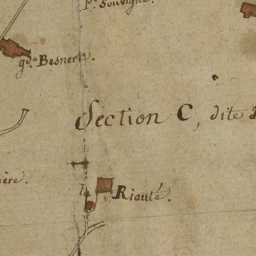 Pt. Souvigné
gde. Besnerie
Section C, dite
ère.
la Riauté.